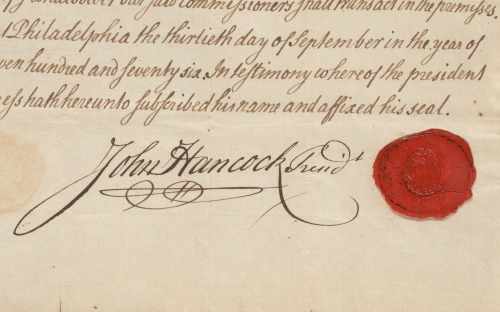 our said commissioners shall transact in the premisses
Philadelphia the thirtieth day of September in the year of
hundred and seventy six. In testimony whereof the president
hath hereunto subscribed his name and affixed his seal.
John Hancock Presidt